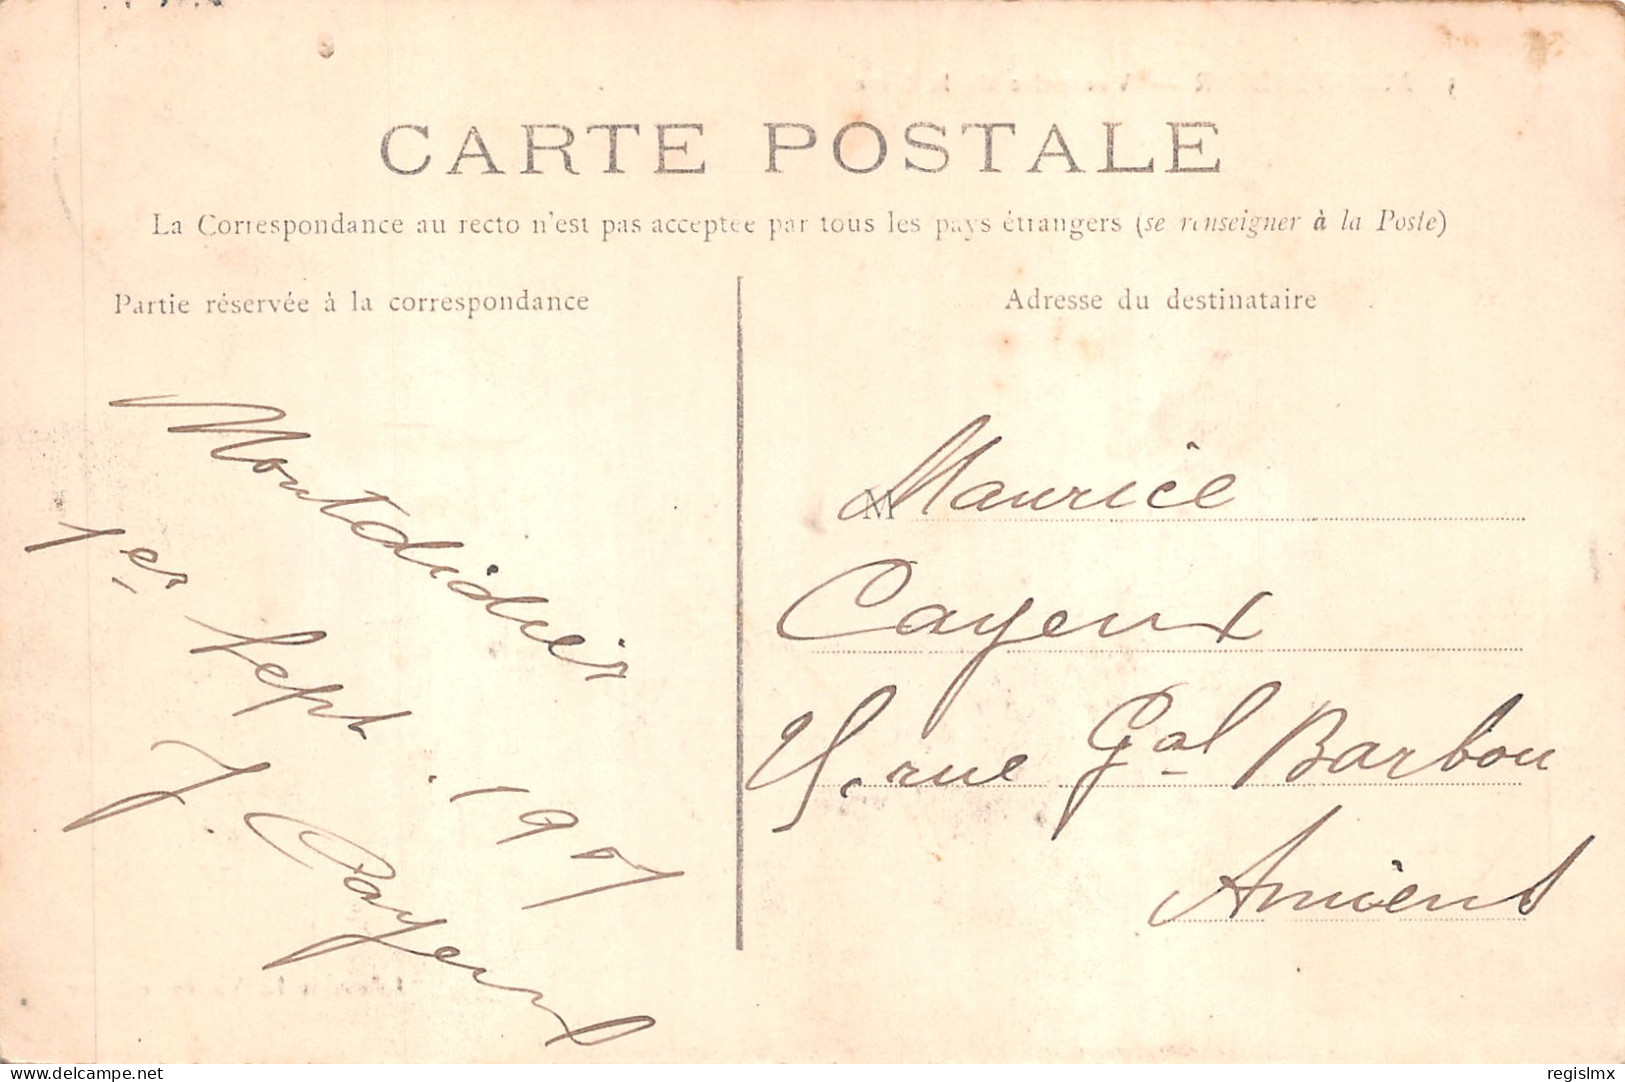 CARTE POSTALE
La Correspondance au recto n'est pas acceptée par tous les pays étrangers (se renseigner à la Poste)
Partie réservée à la correspondance
Adresse du destinataire
Montdidier
1er Sept. 1907
J. Cayeux
M Maurice
Cayeux
rue Gal Barbou
Amiens
www.delcampe.net
regislmx